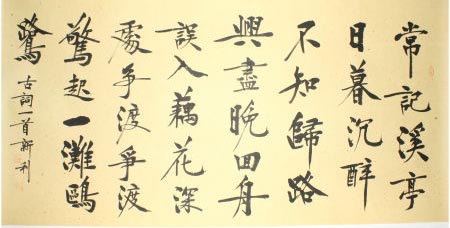 常記溪亭
日暮沉醉
不知歸路
興盡晚回舟
誤入藕花深
處爭渡爭渡
驚起一灘鷗
鷺
古詞一首新利